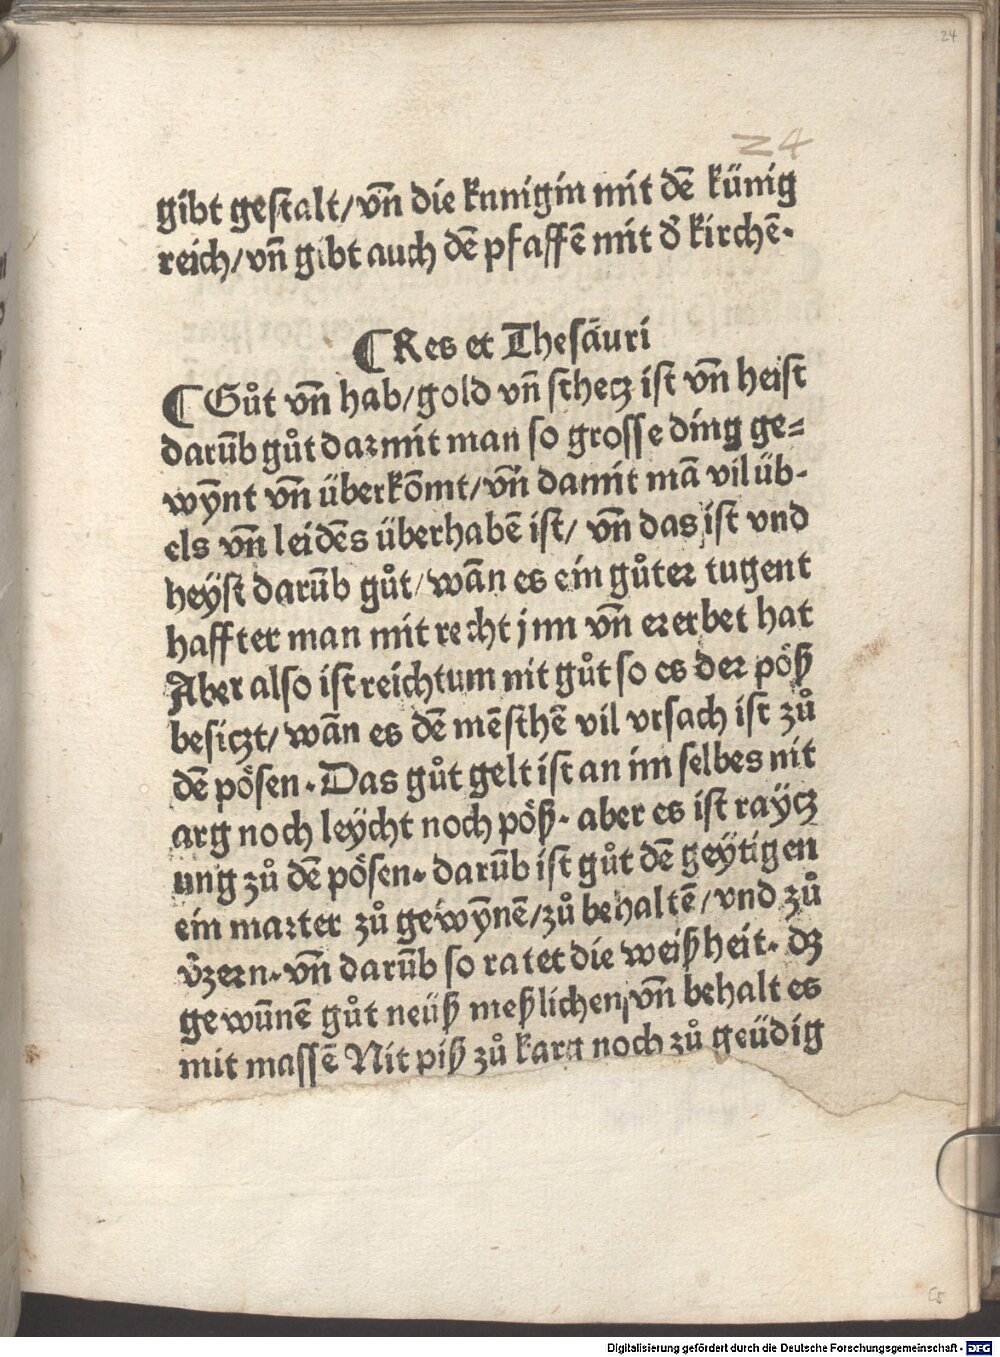 24
24
gibt gestalt/ vn̄ die knnigin mit dē künig
reich/ vn̄ gibt auch dē pfaffē mit d̕ kirchē.
¶ Res et Thesāuri
¶ Gůt vn̄ hab/ gold vn̄ schecz ist vn̄ heist
darūb gůt darmit man so grosse ding ge=
wȳnt vn̄ überkōmt/ vn̄ damit mā vil üb-
els vn̄ leidēs überhabē ist/ vn̄ das ist vnd
heÿst darūb gůt/ wān es ein gůter tugent
haffter man mit recht jnn vn̄ ererbet hat
Aber also ist reichtum nit gůt so es der pöß
besiczt/ wān es dē mēschē vil vrsach ist zů
dē pösen. Das gůt gelt ist an im selbes nit
arg noch leÿcht noch pöß. aber es ist raÿcz
ung zů dē pösen. darūb ist gůt dē geÿtigen
ein marter zů gewȳnē/ zů behaltē/ vnd zů
v̕zern. vn̄ darūb so ratet die weißheit. dz
gewūnē gůt neüß meßlichen/ vn̄ behalt es
mit massē Nit piß zů karg noch zů geüdig
c5
Digitalisierung gefördert durch die Deutsche Forschungsgemeinschaft - DFG